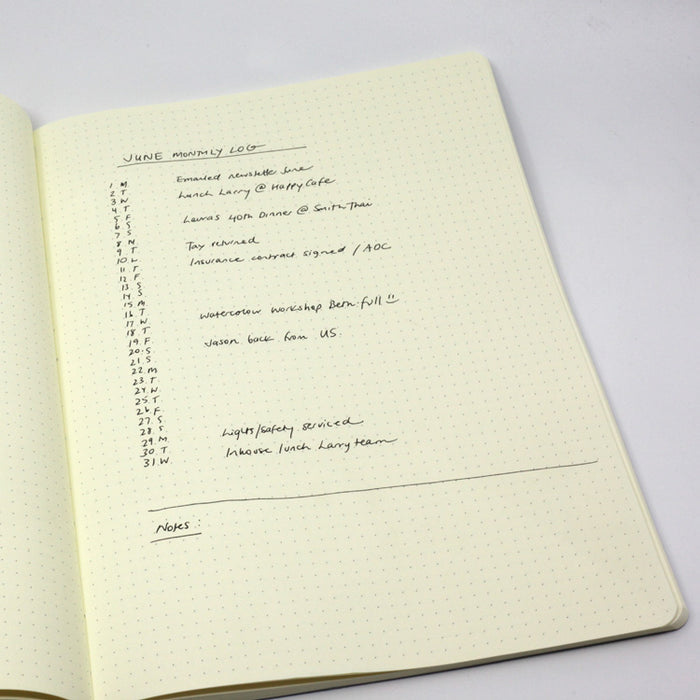 JUNE MONTHLY LOG
1 M.
2 T
3 W
4 T
5 F
6 S
7 S
8 M.
9 T.
10. W
11. T
12. F.
13. S
14. S.
15. M.
16. T
17. W.
18. T
19. F.
20. S.
21. S
22. M
23. T.
24. W.
25. T
26. F.
27. S
28. S.
29. M.
30. T.
31. W.
Emailed newsletter June
Lunch Larry @ Happy Cafe
Lauras 40th Dinner @ Smith Thai
Tax returned
Insurance contract signed / AOC
Watercolour Workshop Bern full !!
Jason back from US.
Lights/safety serviced
Inhouse lunch Larry team
Notes :